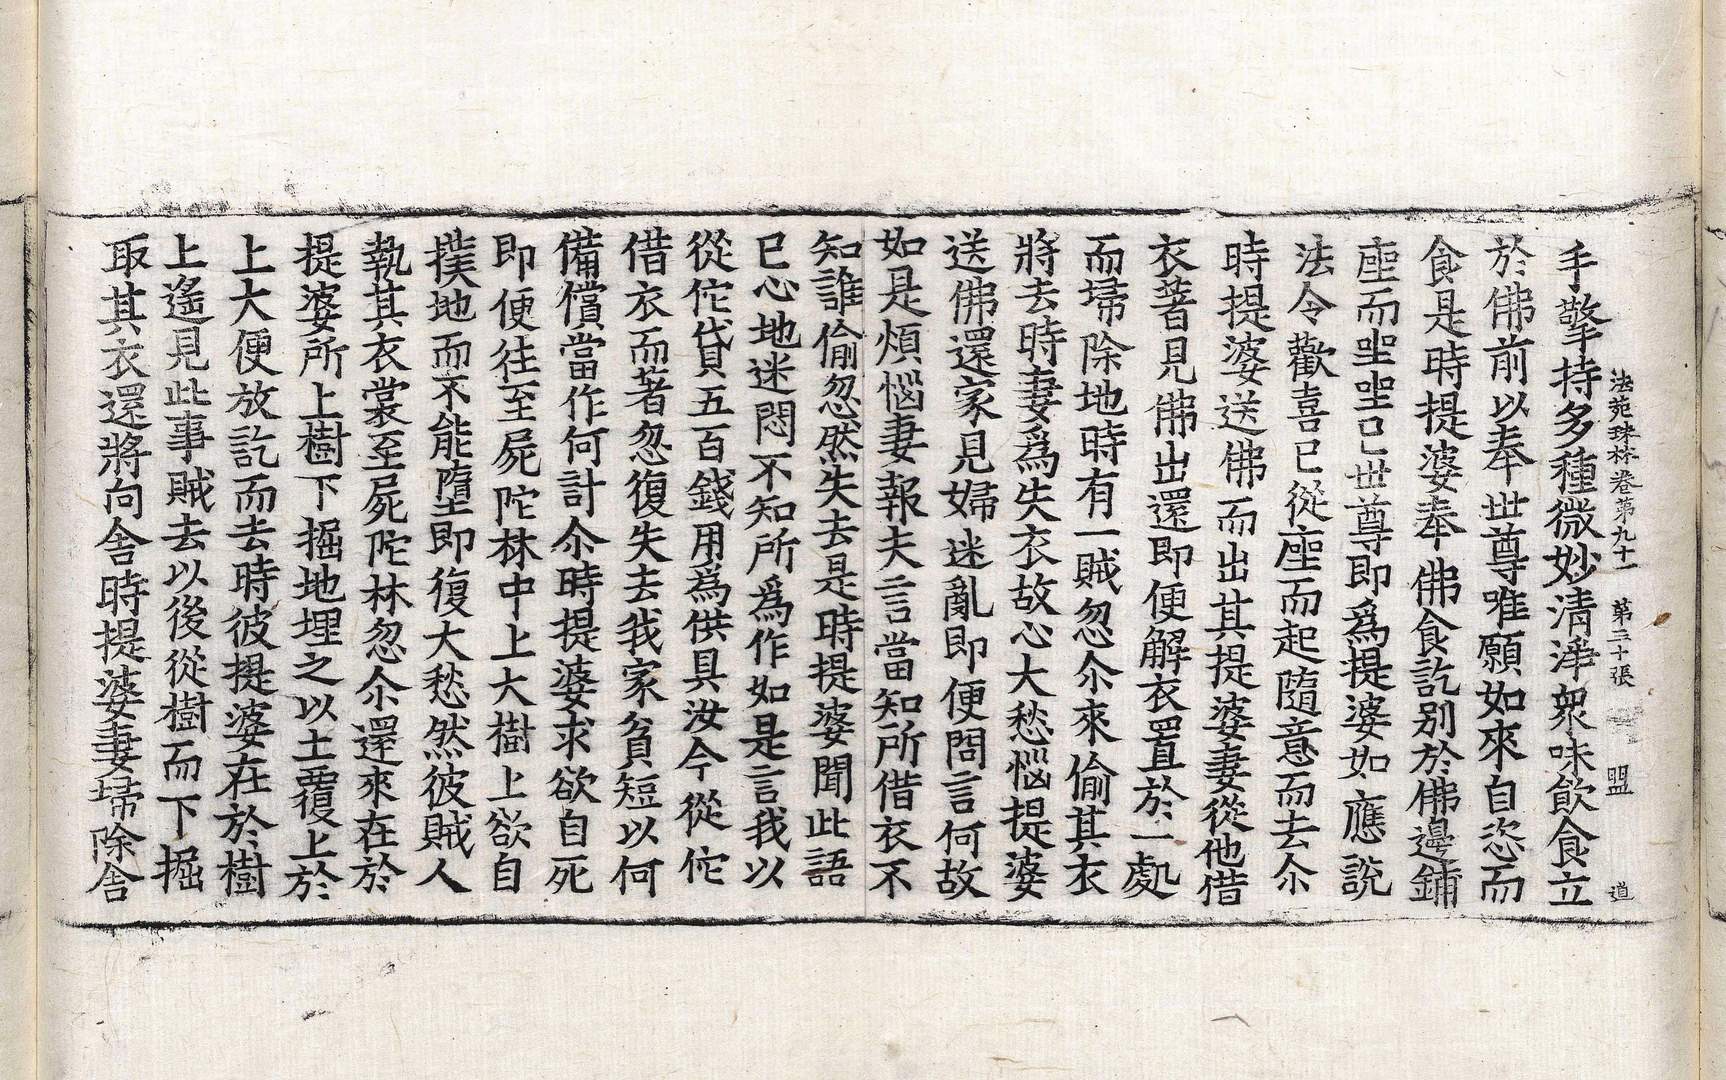 法苑珠林卷第九十一 第三十張 盟 道
手擎持多種微妙清淨衆味飲食立
於佛前以奉世尊唯願如來自恣而
食是時提婆奉佛食訖別於佛邊鋪
座而坐坐已世尊即爲提婆如應說
法令歡喜已從座而起隨意而去尒
時提婆送佛而出其提婆妻從他借
衣著見佛出還即便解衣置於一處
而埽除地時有一賊忽尒來偷其衣
將去時妻爲失衣故心大愁惱提婆
送佛還家見婦迷亂即便問言何故
如是煩惱妻報夫言當知所借衣不
知誰偷忽然失去是時提婆聞此語
已心地迷悶不知所爲作如是言我以
從佗貸五百錢用爲供具汝今從佗
借衣而著忽復失去我家貧短以何
備償當作何計尒時提婆求欲自死
即便往至屍陀林中上大樹上欲自
撲地而不能墮即復大愁然彼賊人
執其衣裳至屍陀林忽尒還來在於
提婆所上樹下掘地埋之以土覆上於
上大便放訖而去時彼提婆在於樹
上遙見此事賊去以後從樹而下掘
取其衣還將向舍時提婆妻埽除舍